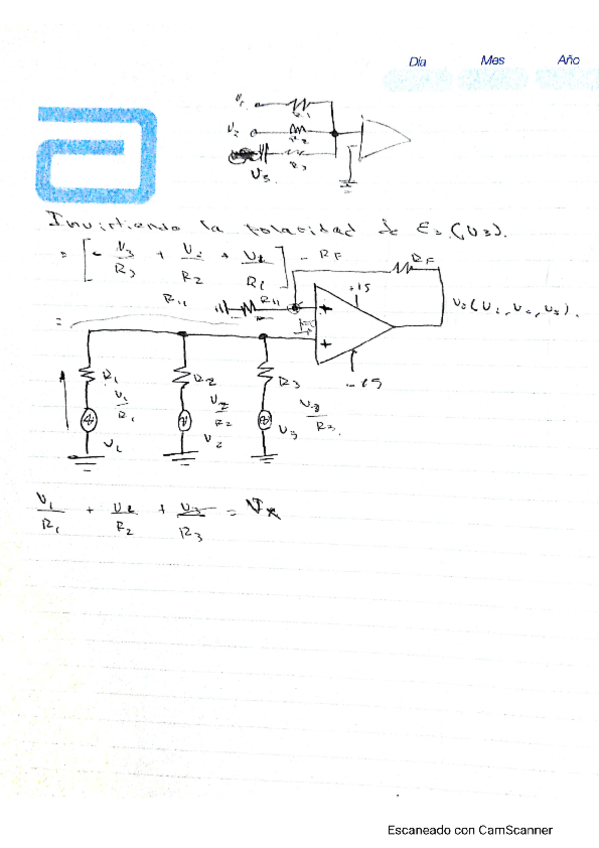 Día Mes Año
V1
R1
V2
R2
R3
V3
Invirtiendo la polaridad de E3 (V3).
= [ - V3/R3 + V2/R2 + V1/R1 ] - RF
RF
R11 R11
+15
V0 (V1, V2, V3).
=
R1 R2 R3
-15
V1/R1 V2/R2 V3/R3.
V1 V2 V3
V1/R1 + V2/R2 + V3/R3 = Vx
Escaneado con CamScanner